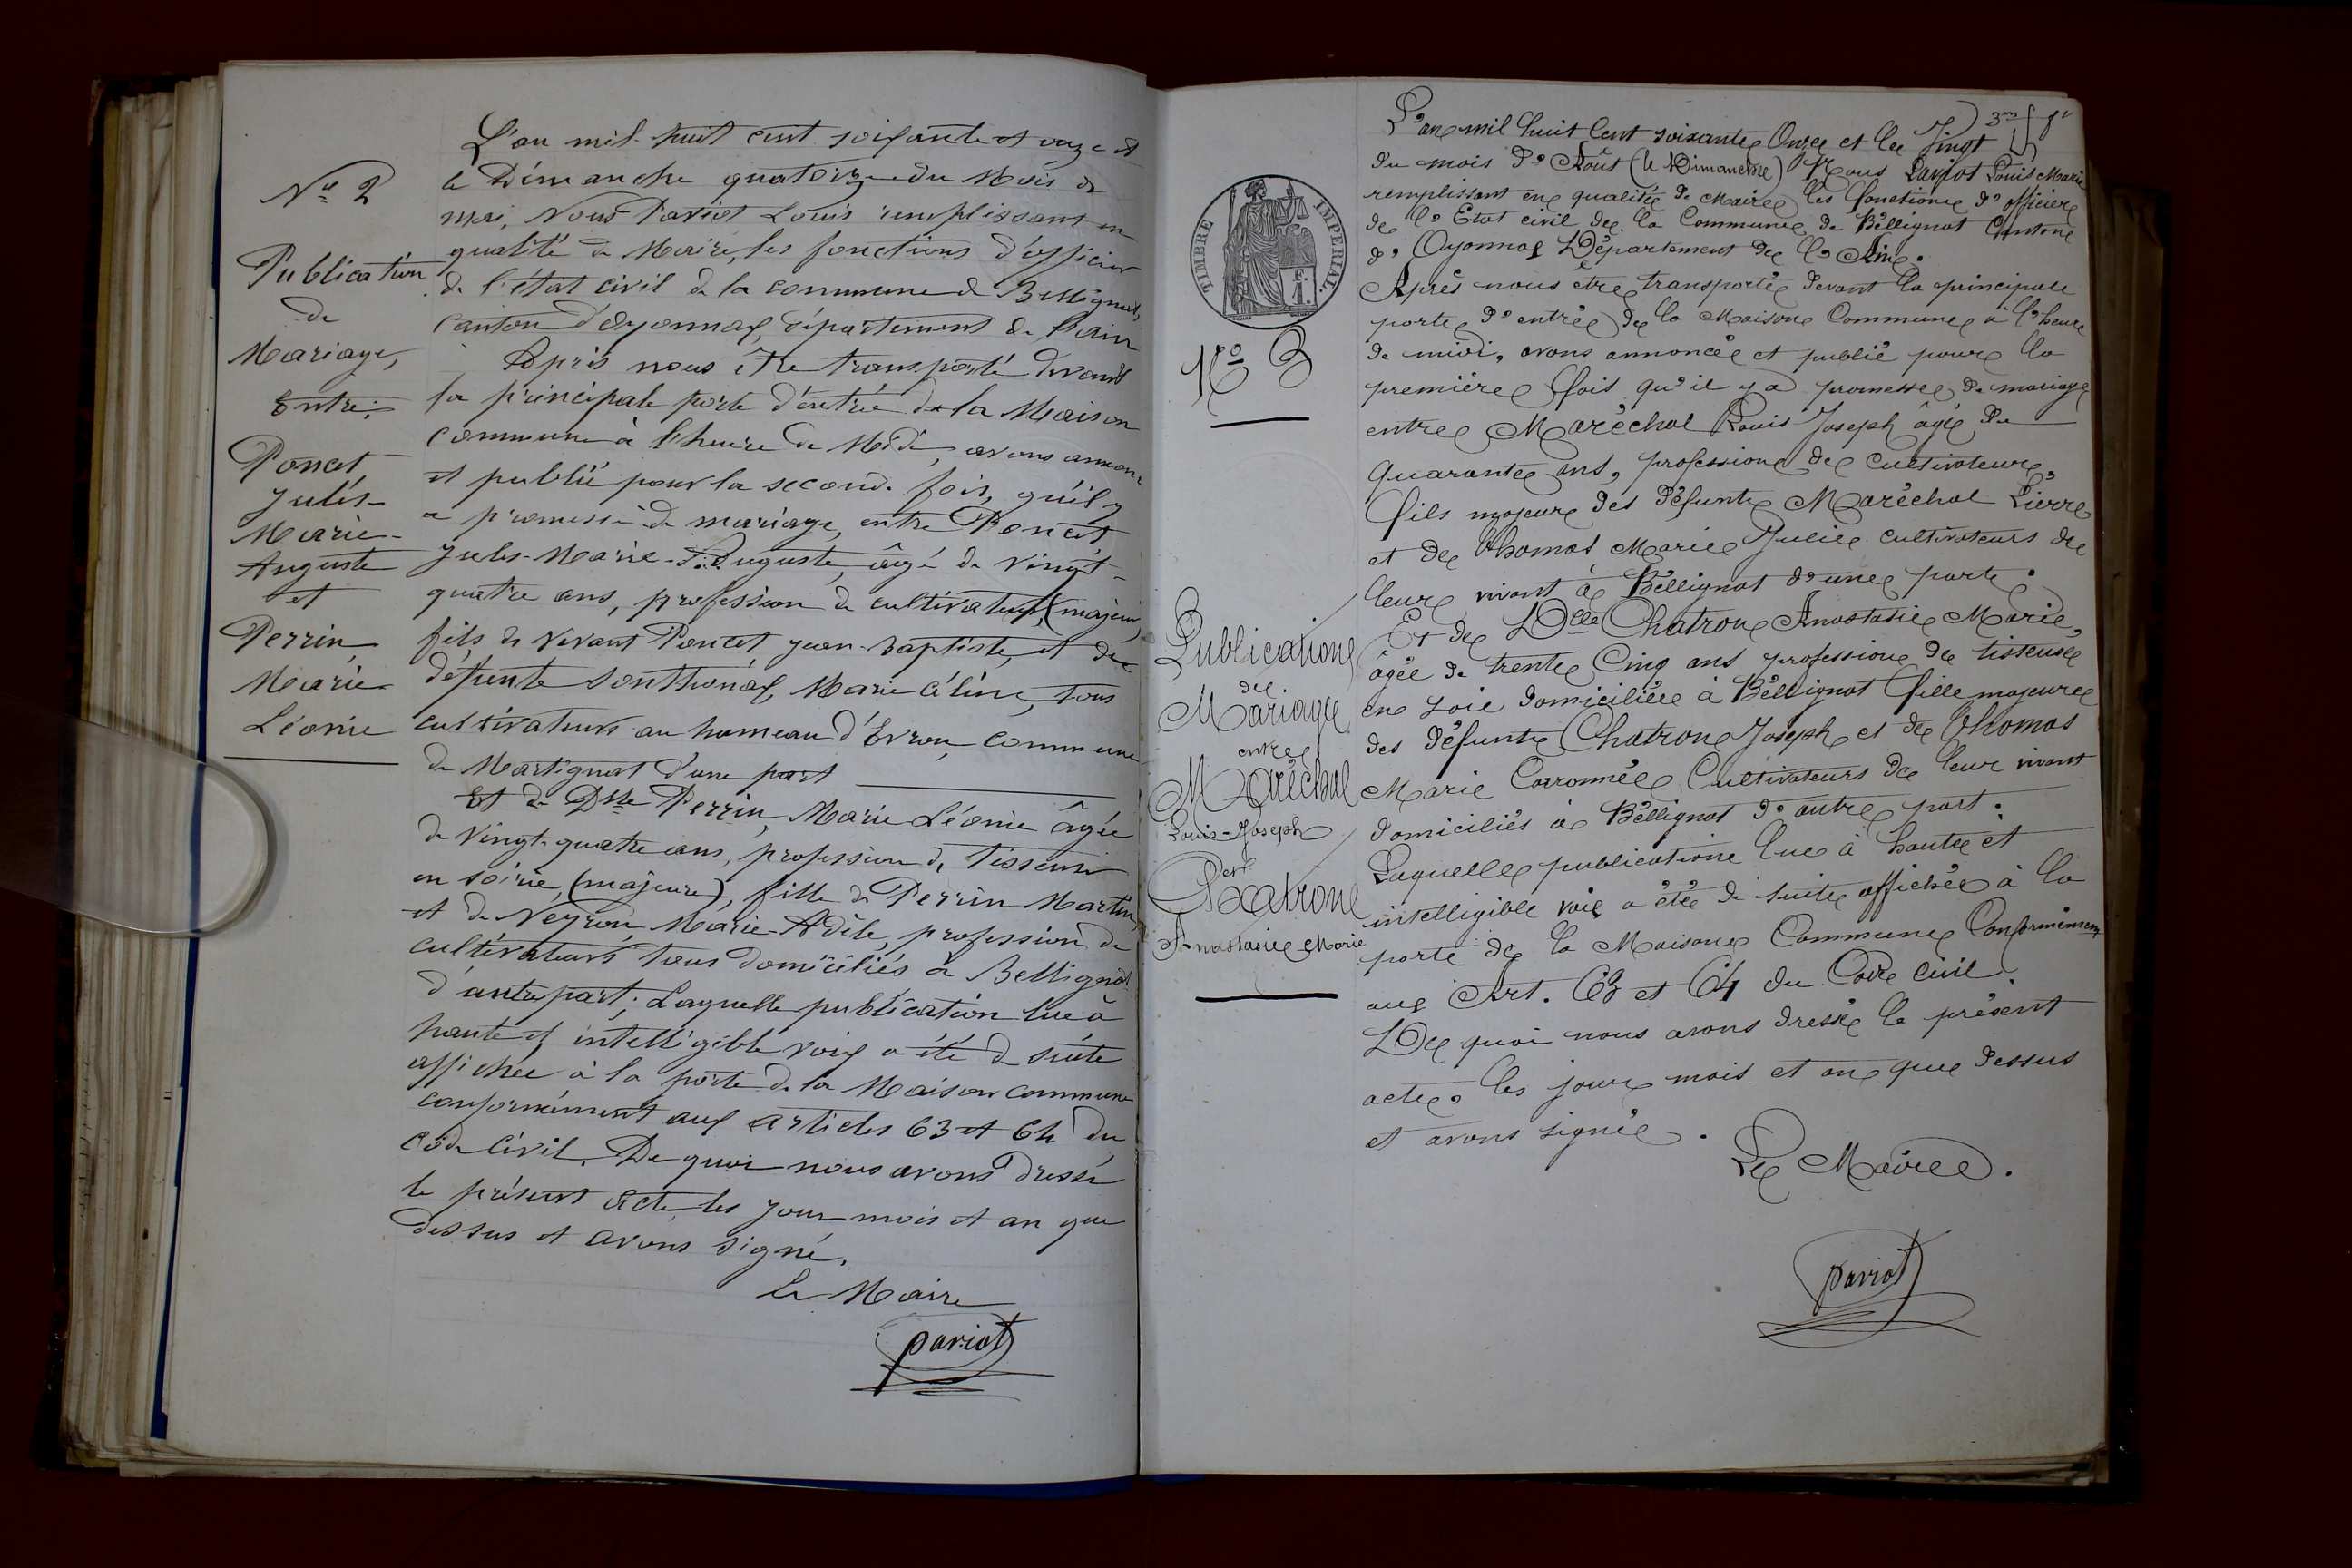 Nº 2
Publication
de
Mariage,
Entre:
Poncet,
Julés-
Marie-
Auguste
et
Perrin,
Marie-
Léonie
L'an mil-huit cent soixante et onze et
le Dimanche quatorze du Mois de
mai, Nous Pariot Louis remplissant en
qualité de Maire, les fonctions d'officier
de l'état civil de la commune de Bellignat,
canton d'Oyonnax, département de l'ain
Après nous être transporté devant
la principale porte d'entrée de la Maison
commune à l'heure de Midi, avons annoncé
et publié pour la seconde fois, qu'il y
a promesse de mariage, entre Poncet
Jules-Marie-Auguste, âgé de vingt-
quatre ans, profession de cultivateur, (majeur)
fils de vivant Poncet Jean-Baptiste, et de
défunte Sonthonax, Marie Céline, tous
cultivateurs au hameau d'Evron, commune
de Martignat d'une part
Et de Dlle Perrin, Marie Léonie âgée
de vingt-quatre ans, profession de tisseuse
en soirie, (majeure), fille de Perrin Martin
et de Neyron Marie-Adèle, profession de
cultivateurs tous domiciliés à Bellignat
d'autre part; Laquelle publication lue à
haute et intelligible voix a été de suite
affichée à la porte de la Maison commune
conformément aux articles 63 et 64 du
code civil. De quoi nous avons dressé
le présent acte les jour mois et an que
dessus et avons signé.
Le Maire
pariot
TIMBRE IMPERIAL.
Nº 3
Publication
de
Mariage
entre
Maréchal
Louis-Joseph
et
Chatron
Anastasie Marie
3me f
L'an mil huit cent soixante Onze et le Vingt
du mois d'Août (le Dimanche) Nous Pariot Louis Marie
remplissant en qualité de Maire les fonctions d'officier
de l'Etat civil de la Commune de Béllignat Canton
d'Oyonnax Département de l'Ain.
Après nous être transporté devant la principale
porte d'entrée de la Maison Commune à l'heure
de midi, avons annoncé et publié pour la
première fois qu'il y a promesse de mariage
entre Maréchal Louis Joseph âgé de
quarante ans, profession de cultivateur,
fils majeur des défunts Maréchal Pierre
et de Thomas Marie Julie cultivateurs de
leur vivant à Béllignat d'une part.
Et de Delle Chatron Anastasie Marie,
âgée de trente Cinq ans profession de tisseuse
en soie domiciliée à Béllignat fille majeure
des défunts Chatron Joseph et de Thomas
Marie Cultivateurs de leur vivant
domiciliés à Béllignat d'autre part.
Laquelle publication lue à haute et
intelligible voix a été de suite affichée à la
porte de la Maison Commune Conformément
aux Art. 63 et 64 du Code civil.
De quoi nous avons dressé le présent
acte, les jour mois et an que dessus
et avons signé.
Le Maire.
pariot